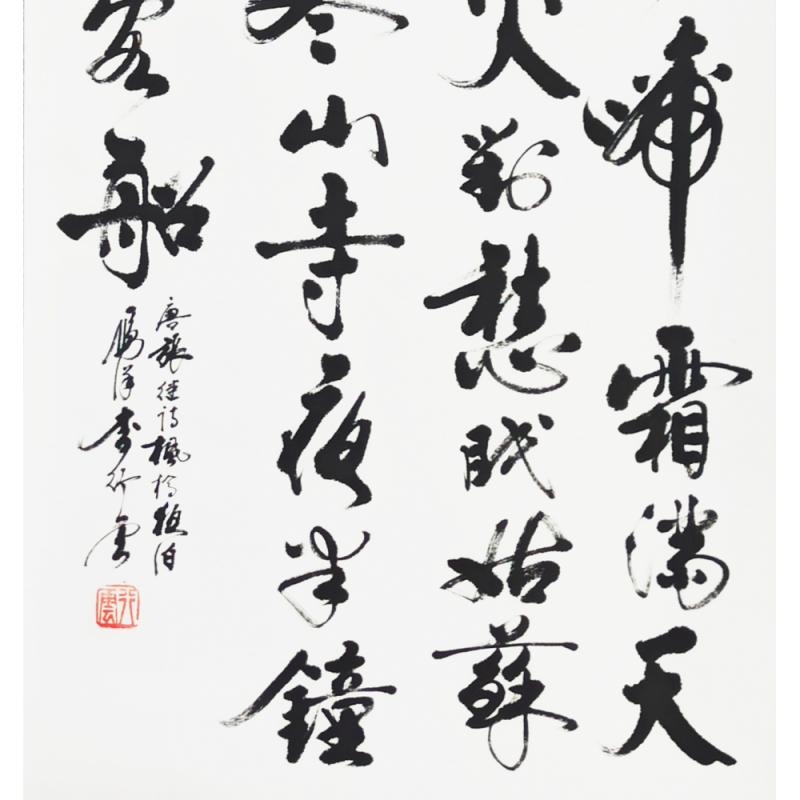 啼霜滿天
火對愁眠姑蘇
寒山寺夜半鐘
客船
唐張继诗楓橋夜泊
李行雲
行雲